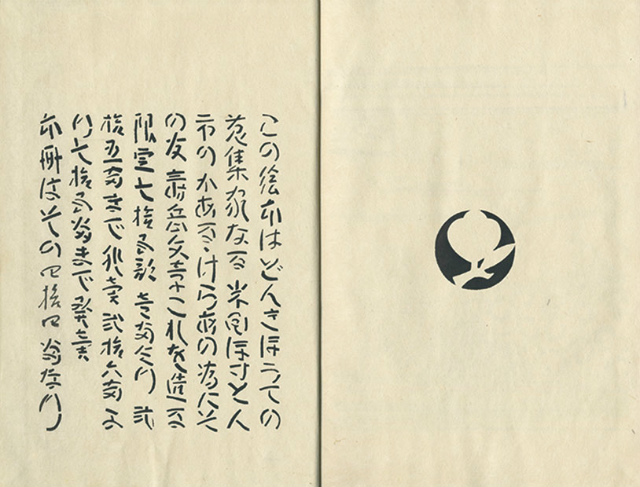 この絵本はどんきほうての
蒐集家なる米国ぼすとん
市のかあるけらあ氏の為にそ
の友壽岳文章これを造る
限定七拾五部壱番より弐
拾五番まで非売弐拾六番よ
り七拾五番まで発売
本冊はその四拾四番なり